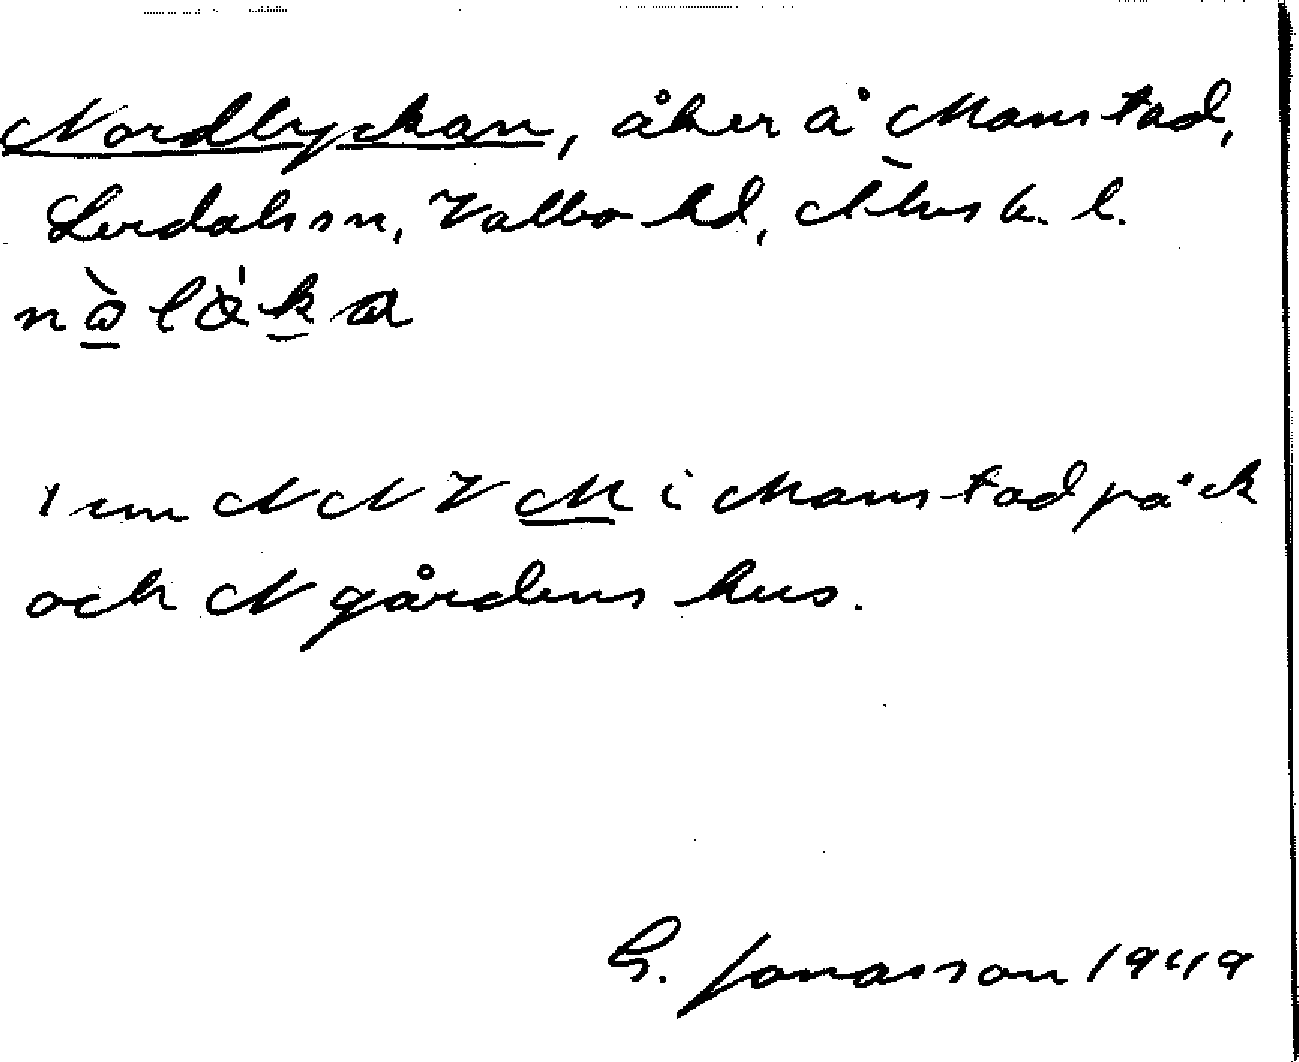 Nordlyckan, åker å Manstad,
Lerdals sn, Valbo hd, Älvsb. l.
nò̱lák̠a
1 sm NNV M i Manstad på ek
och N gårdens hus.
G. Jonasson 1949